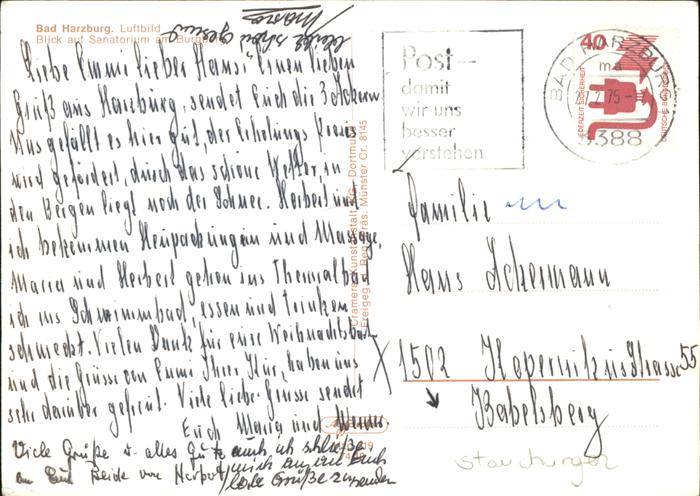 Bad Harzburg. Luftbild
Blick auf Sanatorium am Burgberg
Liebe Emmi lieber Hans, Einen lieben
Gruß aus Harzburg, sendet Euch die 3 Ackermann
Uns gefällt es hier gut, der Erholungs
wird gefördert, durch das schöne Wetter, in
den Bergen liegt noch der Schnee. Herbert und
ich bekommen Heupackungen und Massage,
Maria und Herbert gehen ins Thermalbad
ich ins Schwimmbad, essen und trinken
schmeckt. Vielen Dank für eure Weihnachtskarte
und die Grüsse von Emmi Ihrer Kur, haben uns
sehr darüber gefreut. Viele liebe Grüsse sendet
Euch Maria und
Viele Grüße u. alles Gute
an Euch Beide von Herbert
auch ich schließe
mich an an Euch
liebe Grüße zu senden
Cramers Kunstanstalt KG. Dortmund
Freigeg. d. Reg. Präs. Münster Cr. 8145
Post-
damit
wir uns
besser
verstehen
BAD HARZBURG
ma
2.75
3388
40
JEDERZEIT SICHERHEIT
DEUTSCHE BUNDESPOST
Familie
Hans Ackermann
1502 Kopernikusstrasse 55
Babelsberg